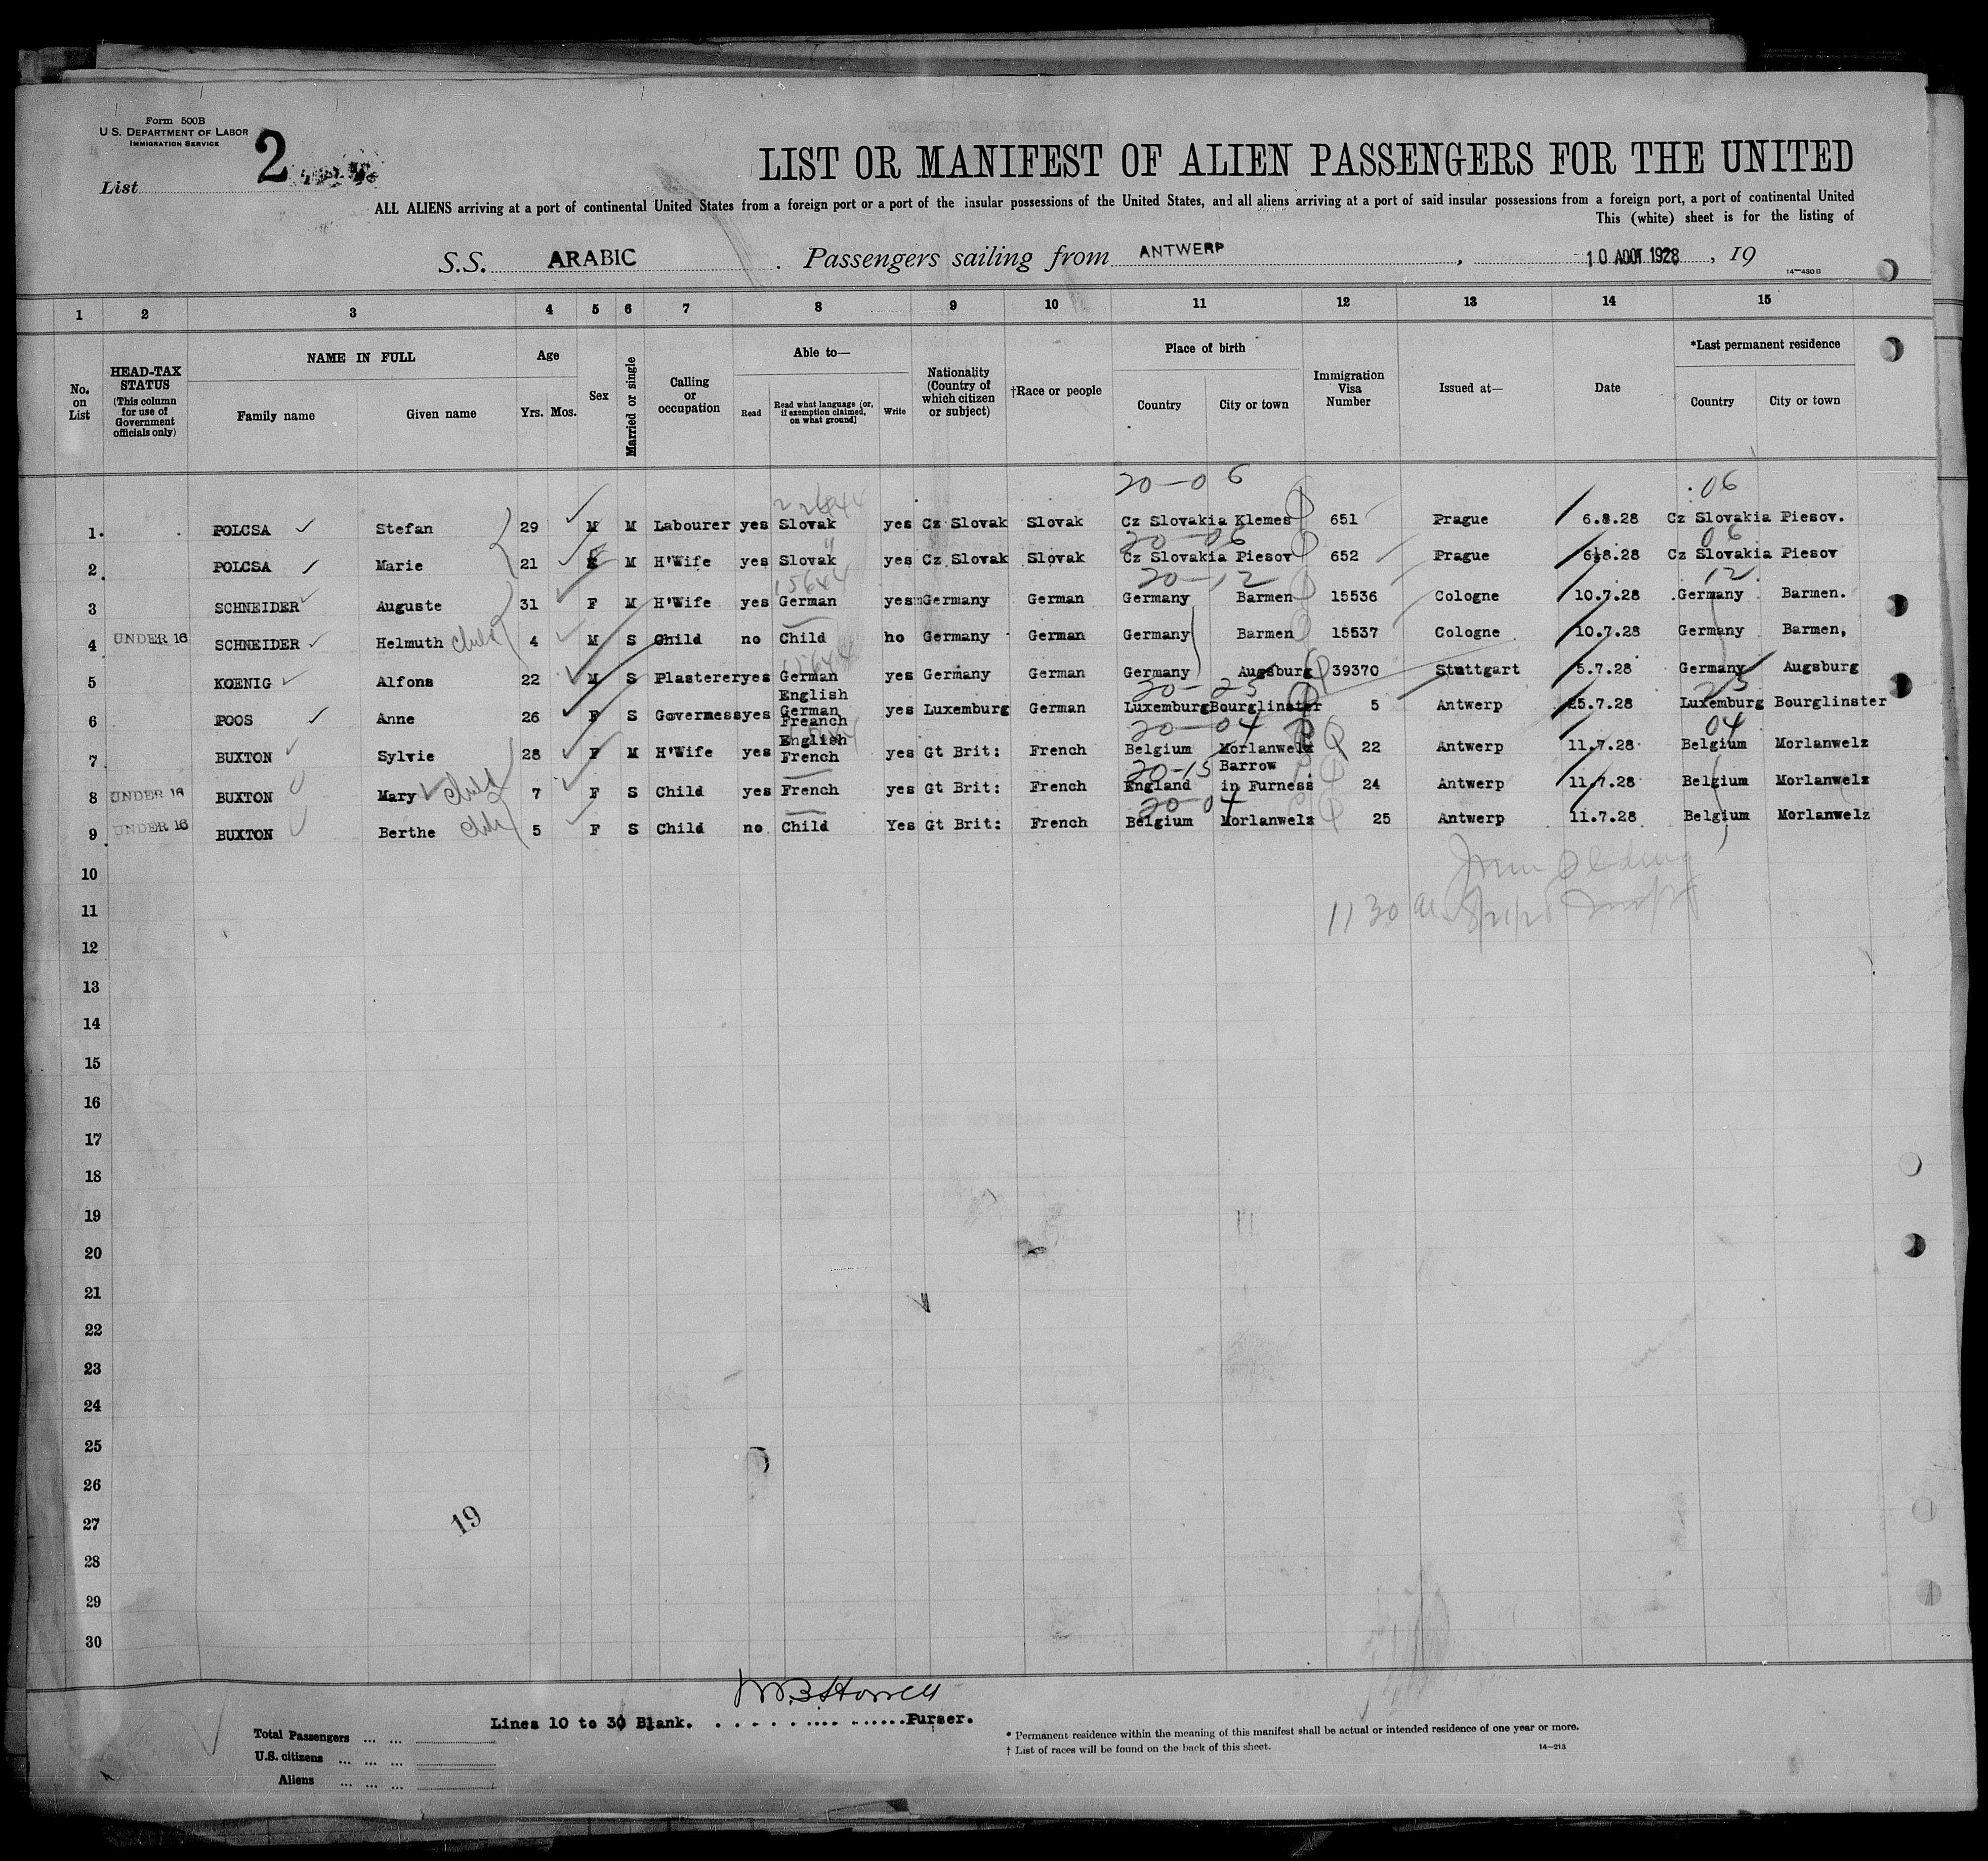 Form 500B
U S. DEPARTMENT OF LABOR
IMMIGRATION SERVICE
List 2
LIST OR MANIFEST OF ALIEN PASSENGERS FOR THE UNITED
ALL ALIENS arriving at a port of continental United States from a foreign port or a port of the insular possessions of the United States, and all aliens arriving at a port of said insular possessions from a foreign port, a port of continental United
This (white) sheet is for the listing of
S.S. ARABIC . Passengers sailing from ANTWERP , 10 AOUT 1928 , 19
14—480 B
1 2 3 4 5 6 7 8 9 10 11 12 13 14 15
No. on List
HEAD-TAX STATUS (This column for use of Government officials only)
NAME IN FULL
Family name Given name
Age
Yrs. Mos.
Sex
Married or single
Calling or occupation
Able to—
Read
Read what language (or, if exemption claimed, on what ground)
Write
Nationality (Country of which citizen or subject)
†Race or people
Place of birth
Country City or town
Immigration Visa Number
Issued at—
Date
*Last permanent residence
Country City or town
20-06 06
1. POLCSA Stefan 29 M M Labourer yes Slovak yes Cz Slovak Slovak Cz Slovakia Klemes 651 Prague 6.8.28 Cz Slovakia Piesov.
20-06 06
2 POLCSA Marie 21 F M H'Wife yes Slovak yes Cz Slovak Slovak Cz Slovakia Piesov 652 Prague 6.8.28 Cz Slovakia Piesov
15644 20-12 12
3 SCHNEIDER Auguste 31 F M H'Wife yes German yes Germany German Germany Barmen 15536 Cologne 10.7.28 Germany Barmen.
4 UNDER 16 SCHNEIDER Helmuth child 4 M S Child no Child no Germany German Germany Barmen 15537 Cologne 10.7.28 Germany Barmen,
5 KOENIG Alfons 22 M S Plasterer yes German yes Germany German Germany Augsburg 39370 Stuttgart 5.7.28 Germany Augsburg
20-23 23
6 POOS Anne 26 F S Governess yes English German Freanch yes Luxemburg German Luxemburg Bourglinster 5 Antwerp 25.7.28 Luxemburg Bourglinster
20-04 04
7 BUXTON Sylvie 28 F M H'Wife yes English French yes Gt Brit: French Belgium Morlanwelz 22 Antwerp 11.7.28 Belgium Morlanwelz
20-15
8 UNDER 16 BUXTON Mary child 7 F S Child yes French yes Gt Brit: French England Barrow in Furness 24 Antwerp 11.7.28 Belgium Morlanwelz
20-04
9 UNDER 16 BUXTON Berthe child 5 F S Child no Child Yes Gt Brit: French Belgium Morlanwelz 25 Antwerp 11.7.28 Belgium Morlanwelz
10
11 11 30
12
13
14
15
16
17
18
19
20
21
22
23
24
25
26
27
19
28
29
30
Lines 10 to 30 Blank. Purser.
Total Passengers ... ...
U.S. citizens ... ... ...
Aliens ... ... ...
* Permanent residence within the meaning of this manifest shall be actual or intended residence of one year or more.
† List of races will be found on the back of this sheet.
14—213